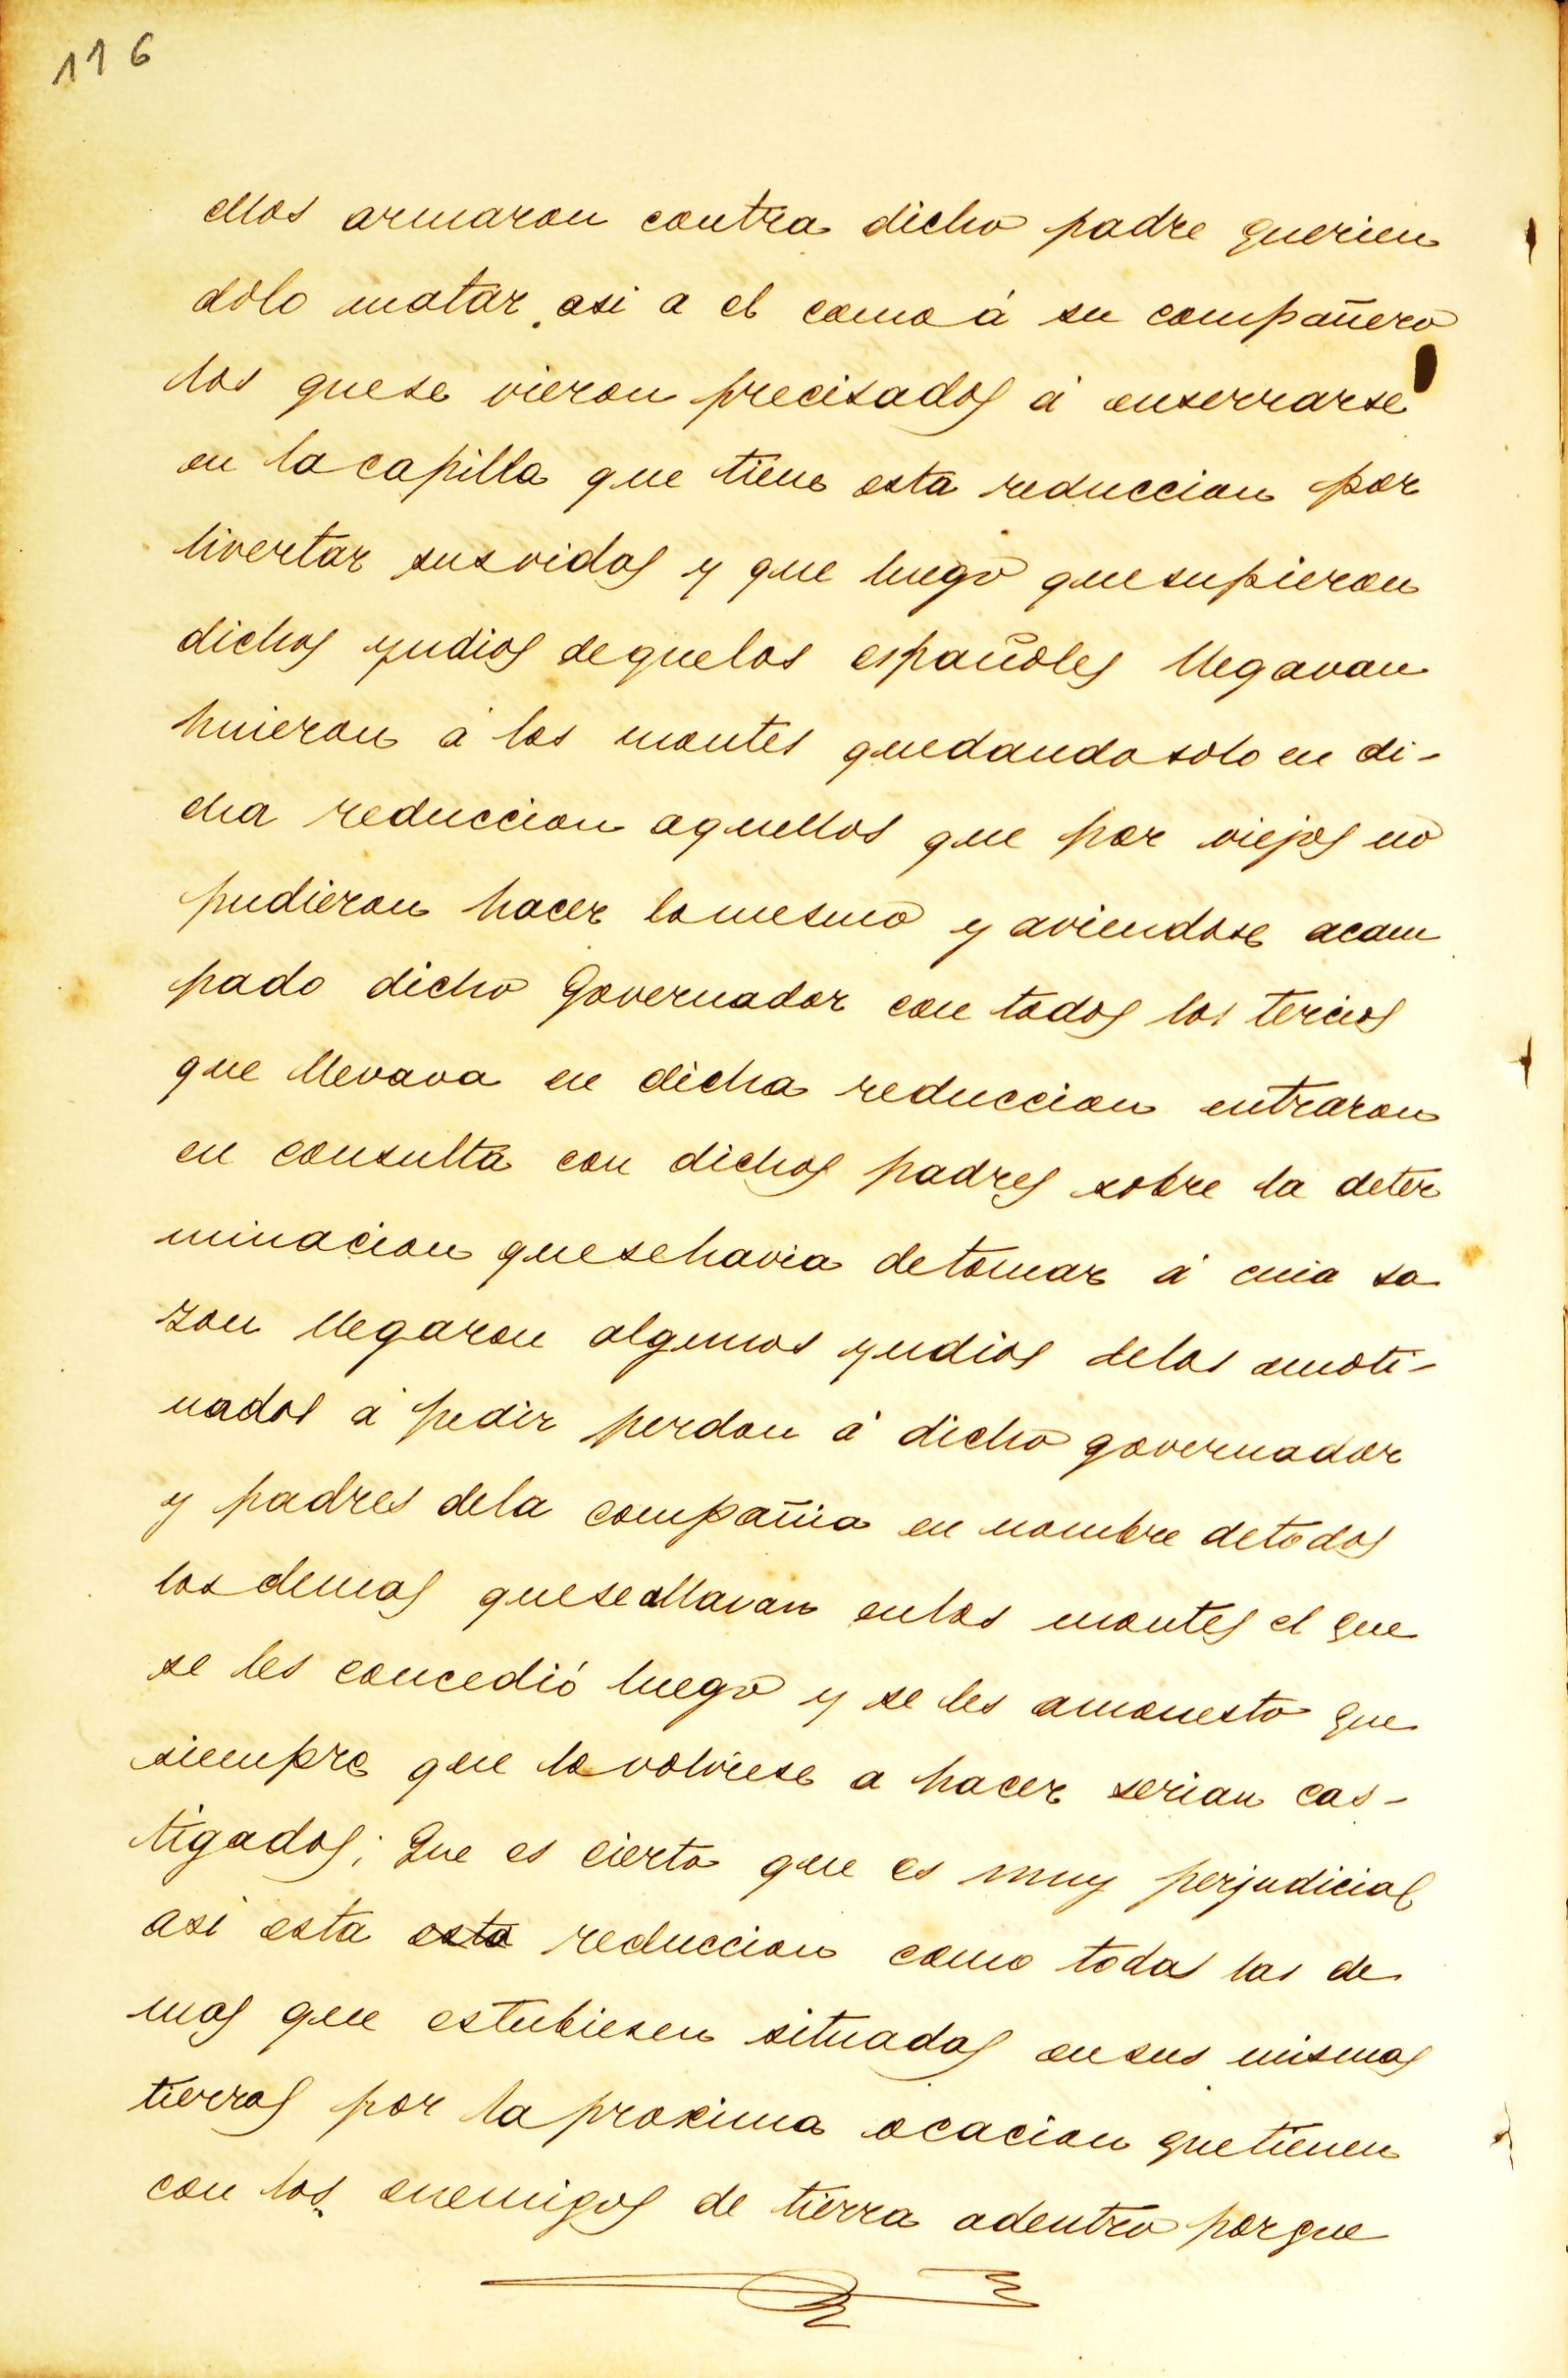 116
ellos armaron contra dicho padre querien
dolo matar asi a el como á su compañero
los quese vieron precisados á enserrarse
en la capilla que tiene esta reduccion por
livertar susvidas y que luego quesupieron
dichos yndios dequelos españoles llegavan
huieron á los montes quedando solo en di-
cha reduccion aquellos que por viejos no
pudieron hacer lomesmo y aviendose acam
pado dicho Governador con todos los tercios
que llevava en dicha reduccion entraron
en consulta con dichos padres sobre la deter
minacion quesehavia detomar á cuia sa
zon llegaron algunos yndios delos amoti-
nados á pedir perdon á dicho governador
y padres dela compañia en nombre detodos
los demas quese allavan enlos montes el que
se les concedió luego y se les amonesto que
siempre que lo volviese a hacer serian cas-
tigados; Que es cierto que es muy perjudicial
asi esta esta reduccion como todas las de
mas que estubiesen situadas ensus mismas
tierras por la proxima ocacion quetienen
con los enemigos de tierra adentro porque